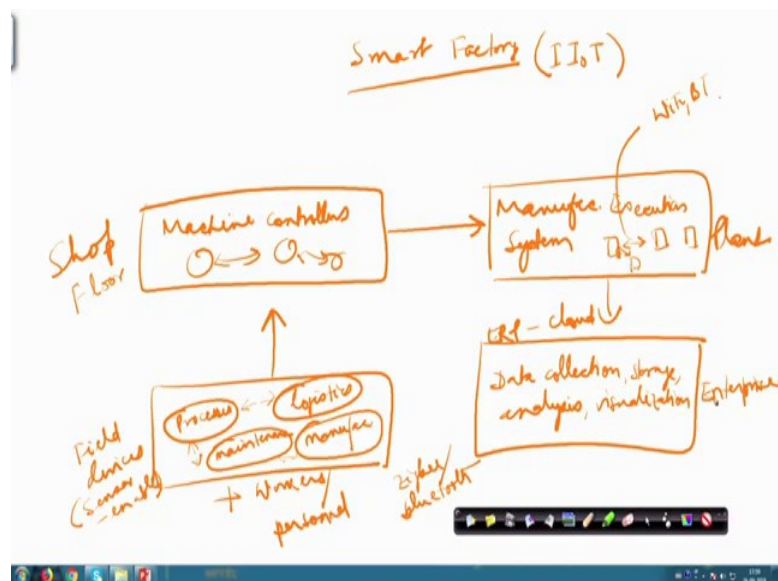 Smart Factory (IIoT)
WiFi, BT.
Shop
Floor
Machine controllers
Manufac. Execution
System
Plant
ERP - cloud
Data collection, storage,
analysis, visualization
Enterprise
Field
devices
(Sensor
-enabled)
Processes
Logistics
maintenance
manufac
+ workers/
personnel
Zigbee/
bluetooth